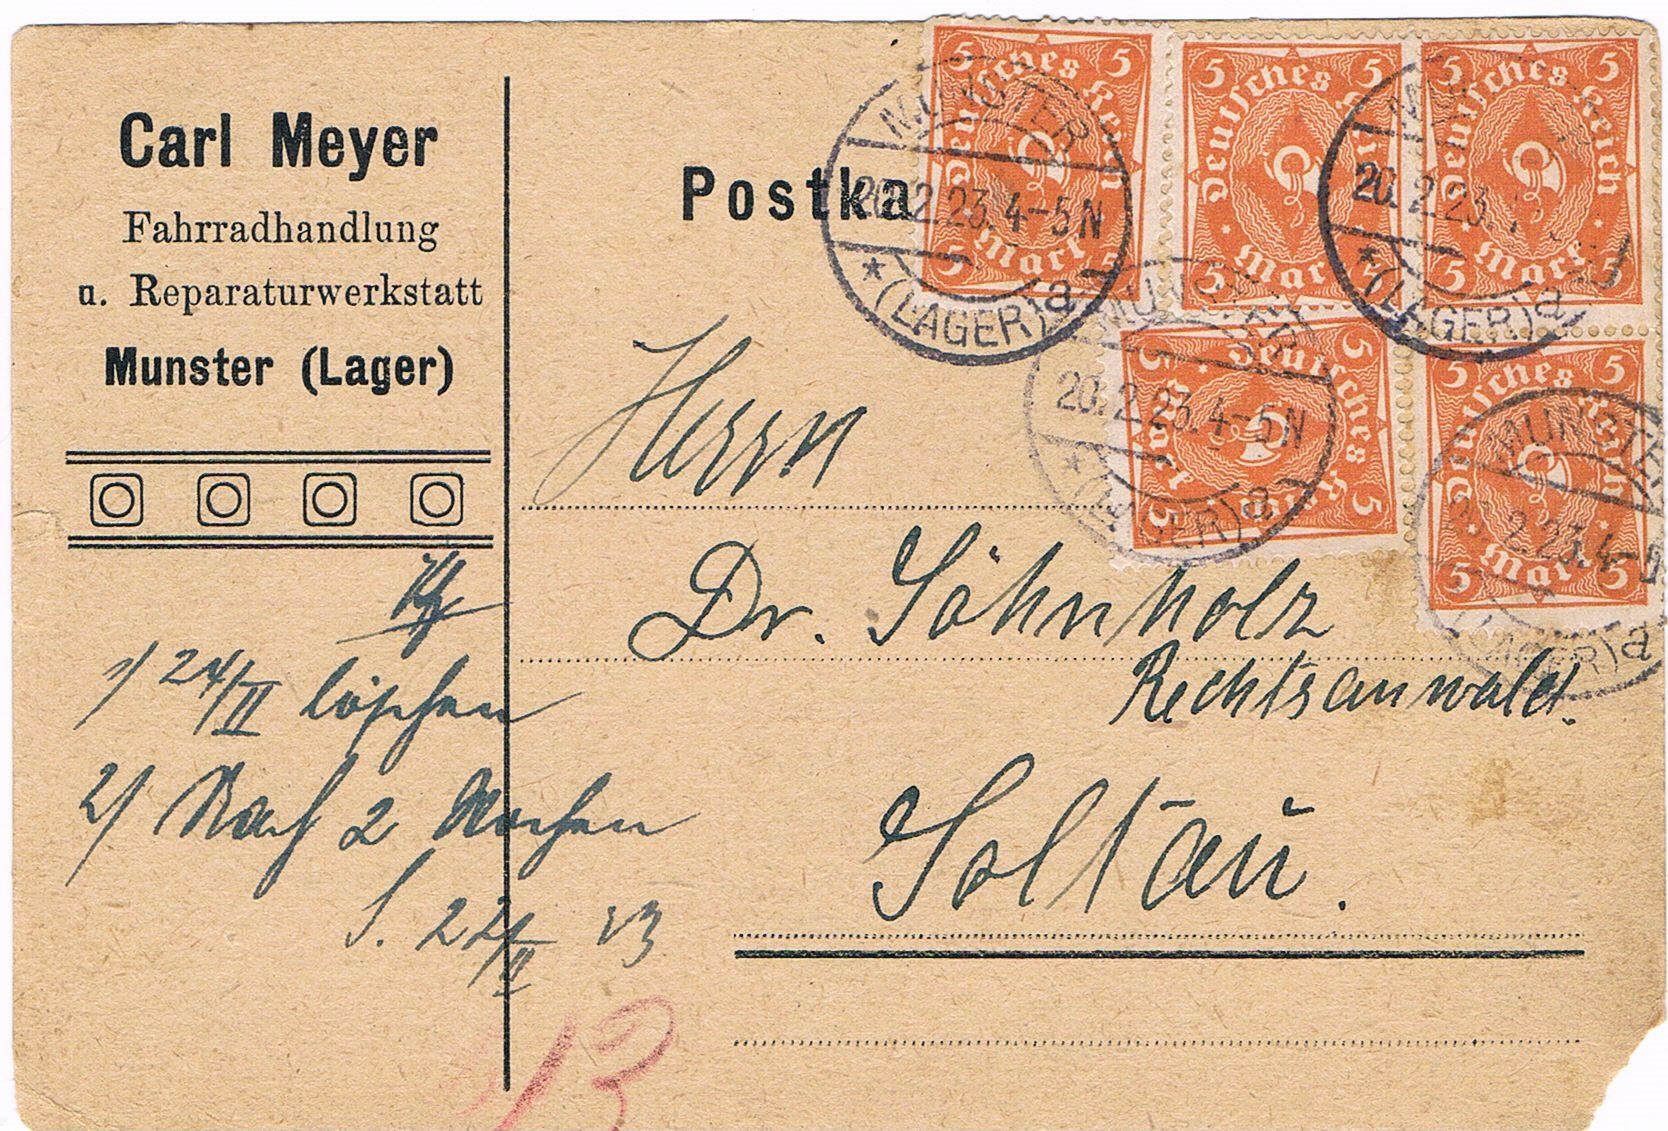 Carl Meyer
Fahrradhandlung
u. Reparaturwerkstatt
Munster (Lager)
1/ 24/II löschen
2/ Nach 2 Wochen
S. 22/II 23
Postka
Herrn
Dr. Söhnholz
Rechtsanwalt.
Soltau.
5 5
Deutsches Reich
Mark
5 5
5 5
Deutsches Reich
Mark
5 5
5 5
Deutsches Reich
Mark
5 5
5 5
Deutsches Reich
5 Mark 5
5 5
Deutsches Reich
Mark
5 5
MUNSTER
20.2.23.4-5N
* (LAGER) a
MUNSTER
20.2.23.4
* (LAGER) a
MUNSTER
20.2.23.4-5N
* (LAGER) a
MUNSTER
20.2.23.4-5
(LAGER) a